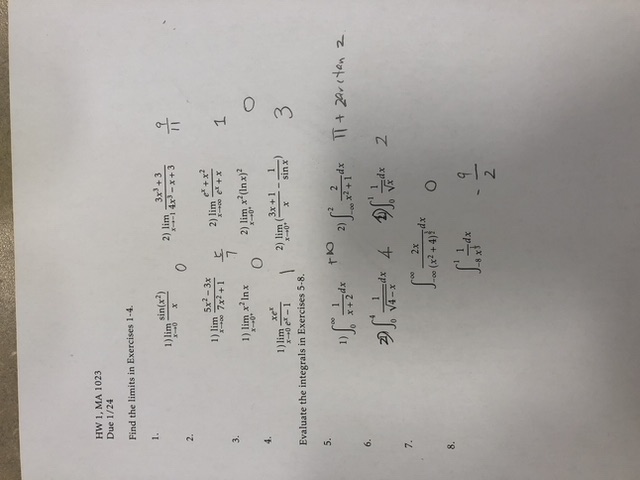 HW 1, MA 1023
Due 1/24
Find the limits in Exercises 1-4.
1.
1) lim x→0 sin(x²)/x 0 2) lim x→−1 (3x³ + 3)/(4x³ − x + 3) 9/11
2.
1) lim x→∞ (5x² − 3x)/(7x² + 1) 5/7 2) lim x→∞ (eˣ + x²)/(eˣ + x) 1
3.
1) lim x→0⁺ x² ln x 0 2) lim x→0⁺ x²(ln x)² 0
4.
1) lim x→0 xeˣ/(eˣ − 1) 1 2) lim x→0⁺ ((3x + 1)/x − 1/sin x) 3
Evaluate the integrals in Exercises 5-8.
5.
1) ∫₀^∞ 1/(x + 2) dx +∞ 2) ∫₋∞^2 2/(x² + 1) dx π + 2arctan 2
6.
2) ∫₀^4 1/√(4 − x) dx 4 1) ∫₀^1 1/√x dx 2
7.
∫₋∞^∞ 2x/(x² + 4)^(3/2) dx 0
8.
∫₋₈^1 1/x^(1/3) dx −9/2